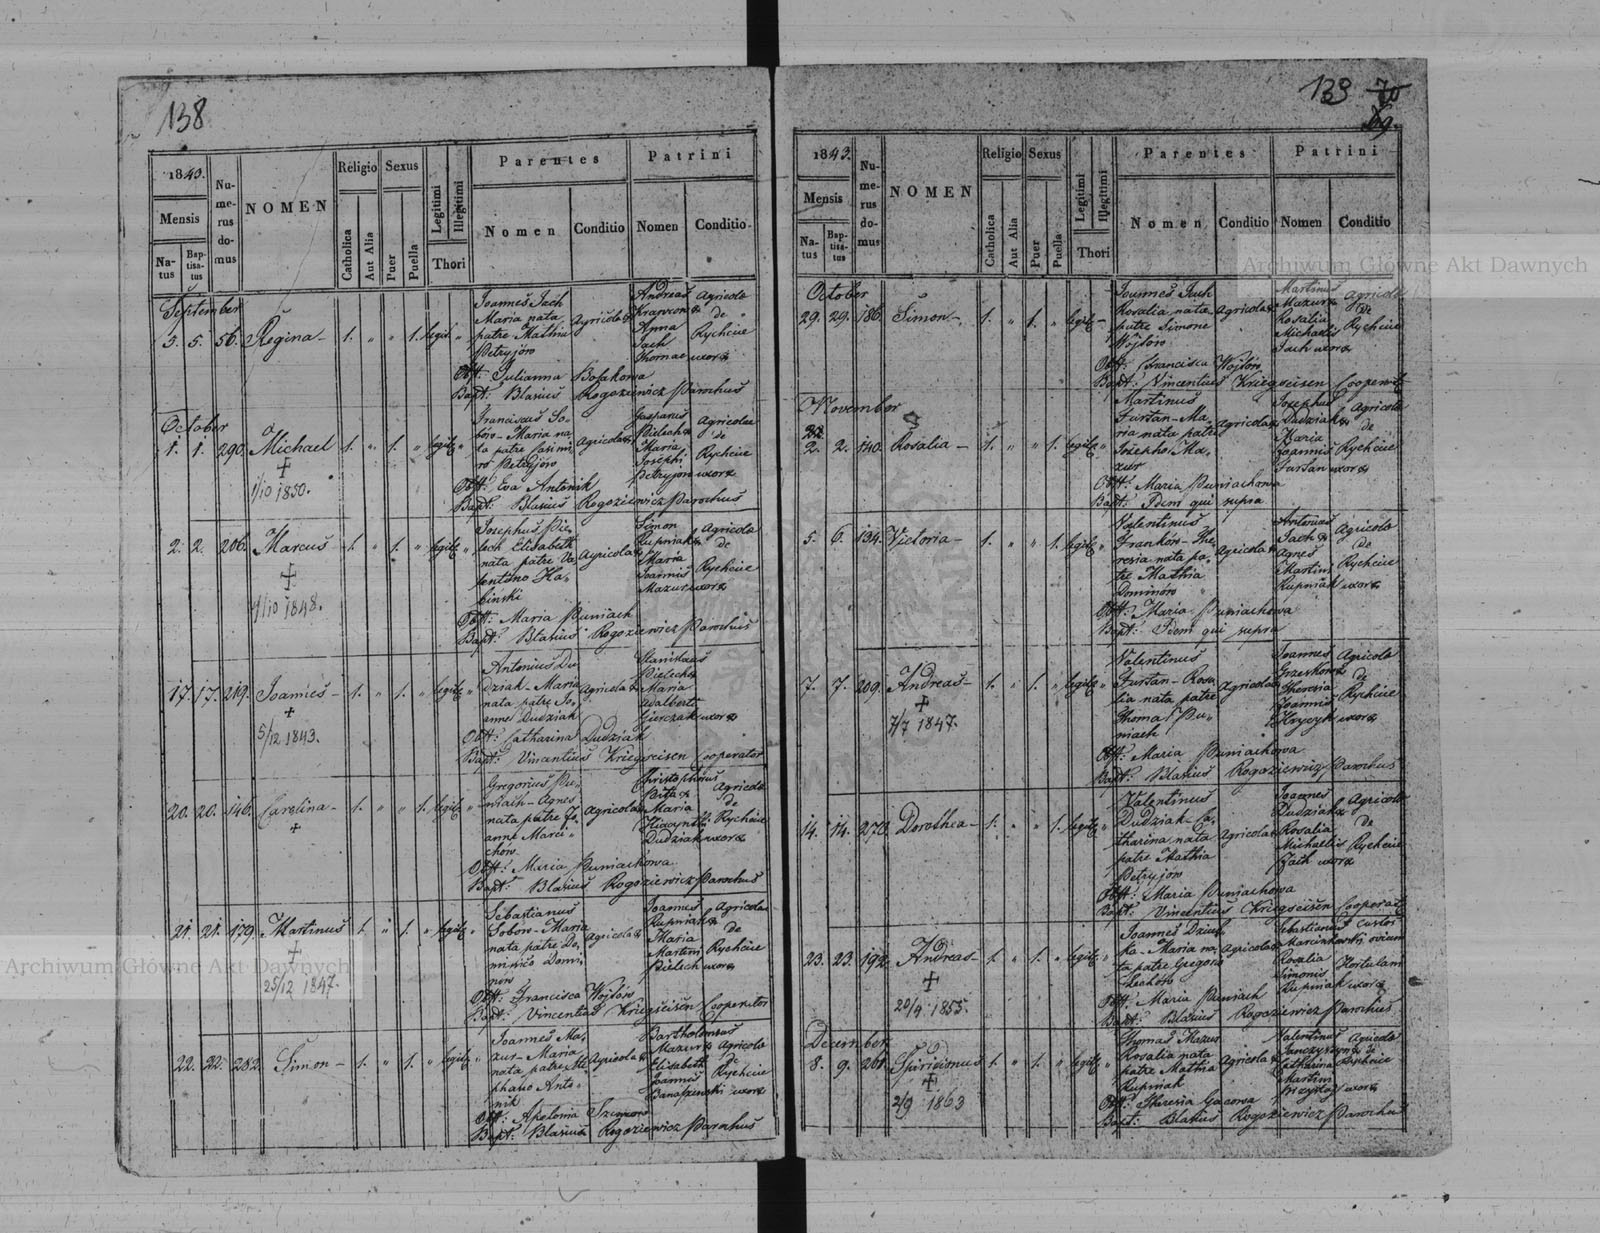 138
1843.
Mensis
Na-
tus
Bap-
tisa-
tus
Nu-
me-
rus
do-
mus
NOMEN
Religio
Catholica
Aut Alia
Sexus
Puer
Puella
Legitimi
Illegitimi
Thori
Parentes
Nomen
Conditio
Patrini
Nomen
Conditio
September
5. 5. 56. Regina - 1. " " 1. legit. "
Joannes Jach
Maria nata
patre Mathia
Petryjów
Agricola
Andreas
Anna
Jach
Thomae uxor
Agricola
de
Rychcice
Obst: Julianna Bosakowa
Bapt: Blasius Rogoziewicz Parochus
October
1. 1. 290. Michael 1. " 1. " legit. "
1/10 1850.
Franciscus So-
bów - Maria na-
ta patre Casimi-
ro Petryjów
Agricola
Gasparus
Bielech &
Maria
Josephi
Petryjów uxor
Agricola
de
Rychcice
Obst: Eva Antonik
Bapt: Blasius Rogoziewicz Parochus
2. 2. 206. Marcus - 1. " 1. " legit. "
1/10 1848.
Josephus Bie-
lech Elisabeth
nata patre Va-
lentino Ha-
binski
Agricola
Simon
Rupniak &
Maria
Joannis
Mazur uxor
Agricola
de
Rychcice
Obst: Maria Puniach
Bapt: Blasius Rogoziewicz Parochus
17. 17. 219. Joannes - 1. " 1. " legit. "
5/12 1843.
Antonius Du-
dziak - Maria
nata patre Jo-
anne Dudziak
Agricola
Stanislaus
Bielech &
Maria
Adalberti
uxor
Obst: Catharina Dudziak
Bapt: Vincentius Kriegseisen Cooperator
20. 20. 146. Carolina - 1. " " 1. legit. "
Gregorius Pu-
niach - Agnes
nata patre Jo-
anne Marci-
chów
Agricola
Christophorus
Bita &
Maria
Hiacynthi
Dudziak uxor
Agricola
de
Rychcice
Obst: Maria Puniachowa
Bapt: Blasius Rogoziewicz Parochus
21. 21. 179. Martinus 1. " 1. " legit. "
25/12 1847.
Sebastianus
Sobów - Maria
nata patre Do-
minico Domi-
now
Agricola
Joannes
Rupniak &
Maria
Martini
Bielech uxor
Agricola
de
Rychcice
Obst: Francisca Wojtów
Bapt: Vincentius Kriegseisen Cooperator
22. 22. 282. Simon - 1. " 1. " legit. "
Joannes Ma-
zur - Maria
nata patre Ste-
phano Anto-
nik
Agricola
Bartholomeus
Mazur &
Elisabeth
Joannis
uxor
Agricola
de
Rychcice
Obst: Apolonia
Bapt: Blasius Rogoziewicz Parochus
139
69.
1843.
Mensis
Na-
tus
Bap-
tisa-
tus
Nu-
me-
rus
do-
mus
NOMEN
Religio
Catholica
Aut Alia
Sexus
Puer
Puella
Legitimi
Illegitimi
Thori
Parentes
Nomen
Conditio
Patrini
Nomen
Conditio
Archiwum Główne Akt Dawnych
October
29. 29. 186. Simon - 1. " 1. " legit. -
Joannes Jach
Rosalia nata
patre Simone
Wojtów
Agricola
Martinus
Mazur &
Rosalia
Michaelis
Jach uxor
Agricola
de
Rychcice
Obst: Francisca Wojtów
Bapt: Vincentius Kriegseisen Cooperat
November
2. 2. 140. Rosalia - 1. " " 1. legit. "
Martinus
Furtan - Ma-
ria nata patre
Josepho Ma-
zur
Agricola
Josephus
Dudziak &
Maria
Joannis
Furtan uxor
Agricola
de
Rychcice
Obst: Maria Puniachowa
Bapt: Idem qui supra
5. 6. 134. Victoria - 1. " " 1. legit. "
Valentinus
Franków - The-
resia nata pa-
tre Mathia
Dominów
Agricola
Antonius
Jach &
Agnes
Martini
Rupniak uxor
Agricola
de
Rychcice
Obst: Maria Puniachowa
Bapt: Idem qui supra
7. 7. 209. Andreas - 1. " 1. " legit. "
7/7 1847.
Valentinus
Furtan - Rosa-
lia nata patre
Thoma Pu-
niach
Agricola
Joannes
Theresia
Joannis
Hrycyk uxor
Agricola
de
Rychcice
Obst: Maria Puniachowa
Bapt: Blasius Rogoziewicz Parochus
14. 14. 270. Dorothea - 1. " " 1. legit. "
Valentinus
Dudziak - Ca-
tharina nata
patre Mathia
Petryjów
Agricola
Joannes
Dudziak &
Rosalia
Michaelis
Jach uxor
Agricola
de
Rychcice
Obst: Maria Puniachowa
Bapt: Vincentius Kriegseisen Cooperat
23. 23. 192. Andreas - 1. " 1. " legit. "
20/4 1855.
Joannes
Maria na-
ta patre Gregorio
Lechów
Agricola
Sebastianus
Rosalia
Simonis
Rupniak uxor
Custos
Hortulan
Obst: Maria Puniach
Bapt: Blasius Rogoziewicz Parochus
December
8. 9. 261. Spiridionus 1. " 1. " legit. "
2/9 1863
Thomas Mazur
Rosalia nata
patre Mathia
Rupniak
Agricola
Valentinus
Catharina
Martini
uxor
Agricola
de
Rychcice
Obst: Theresia Gacowa
Bapt: Blasius Rogoziewicz Parochus
Archiwum Główne Akt Dawnych